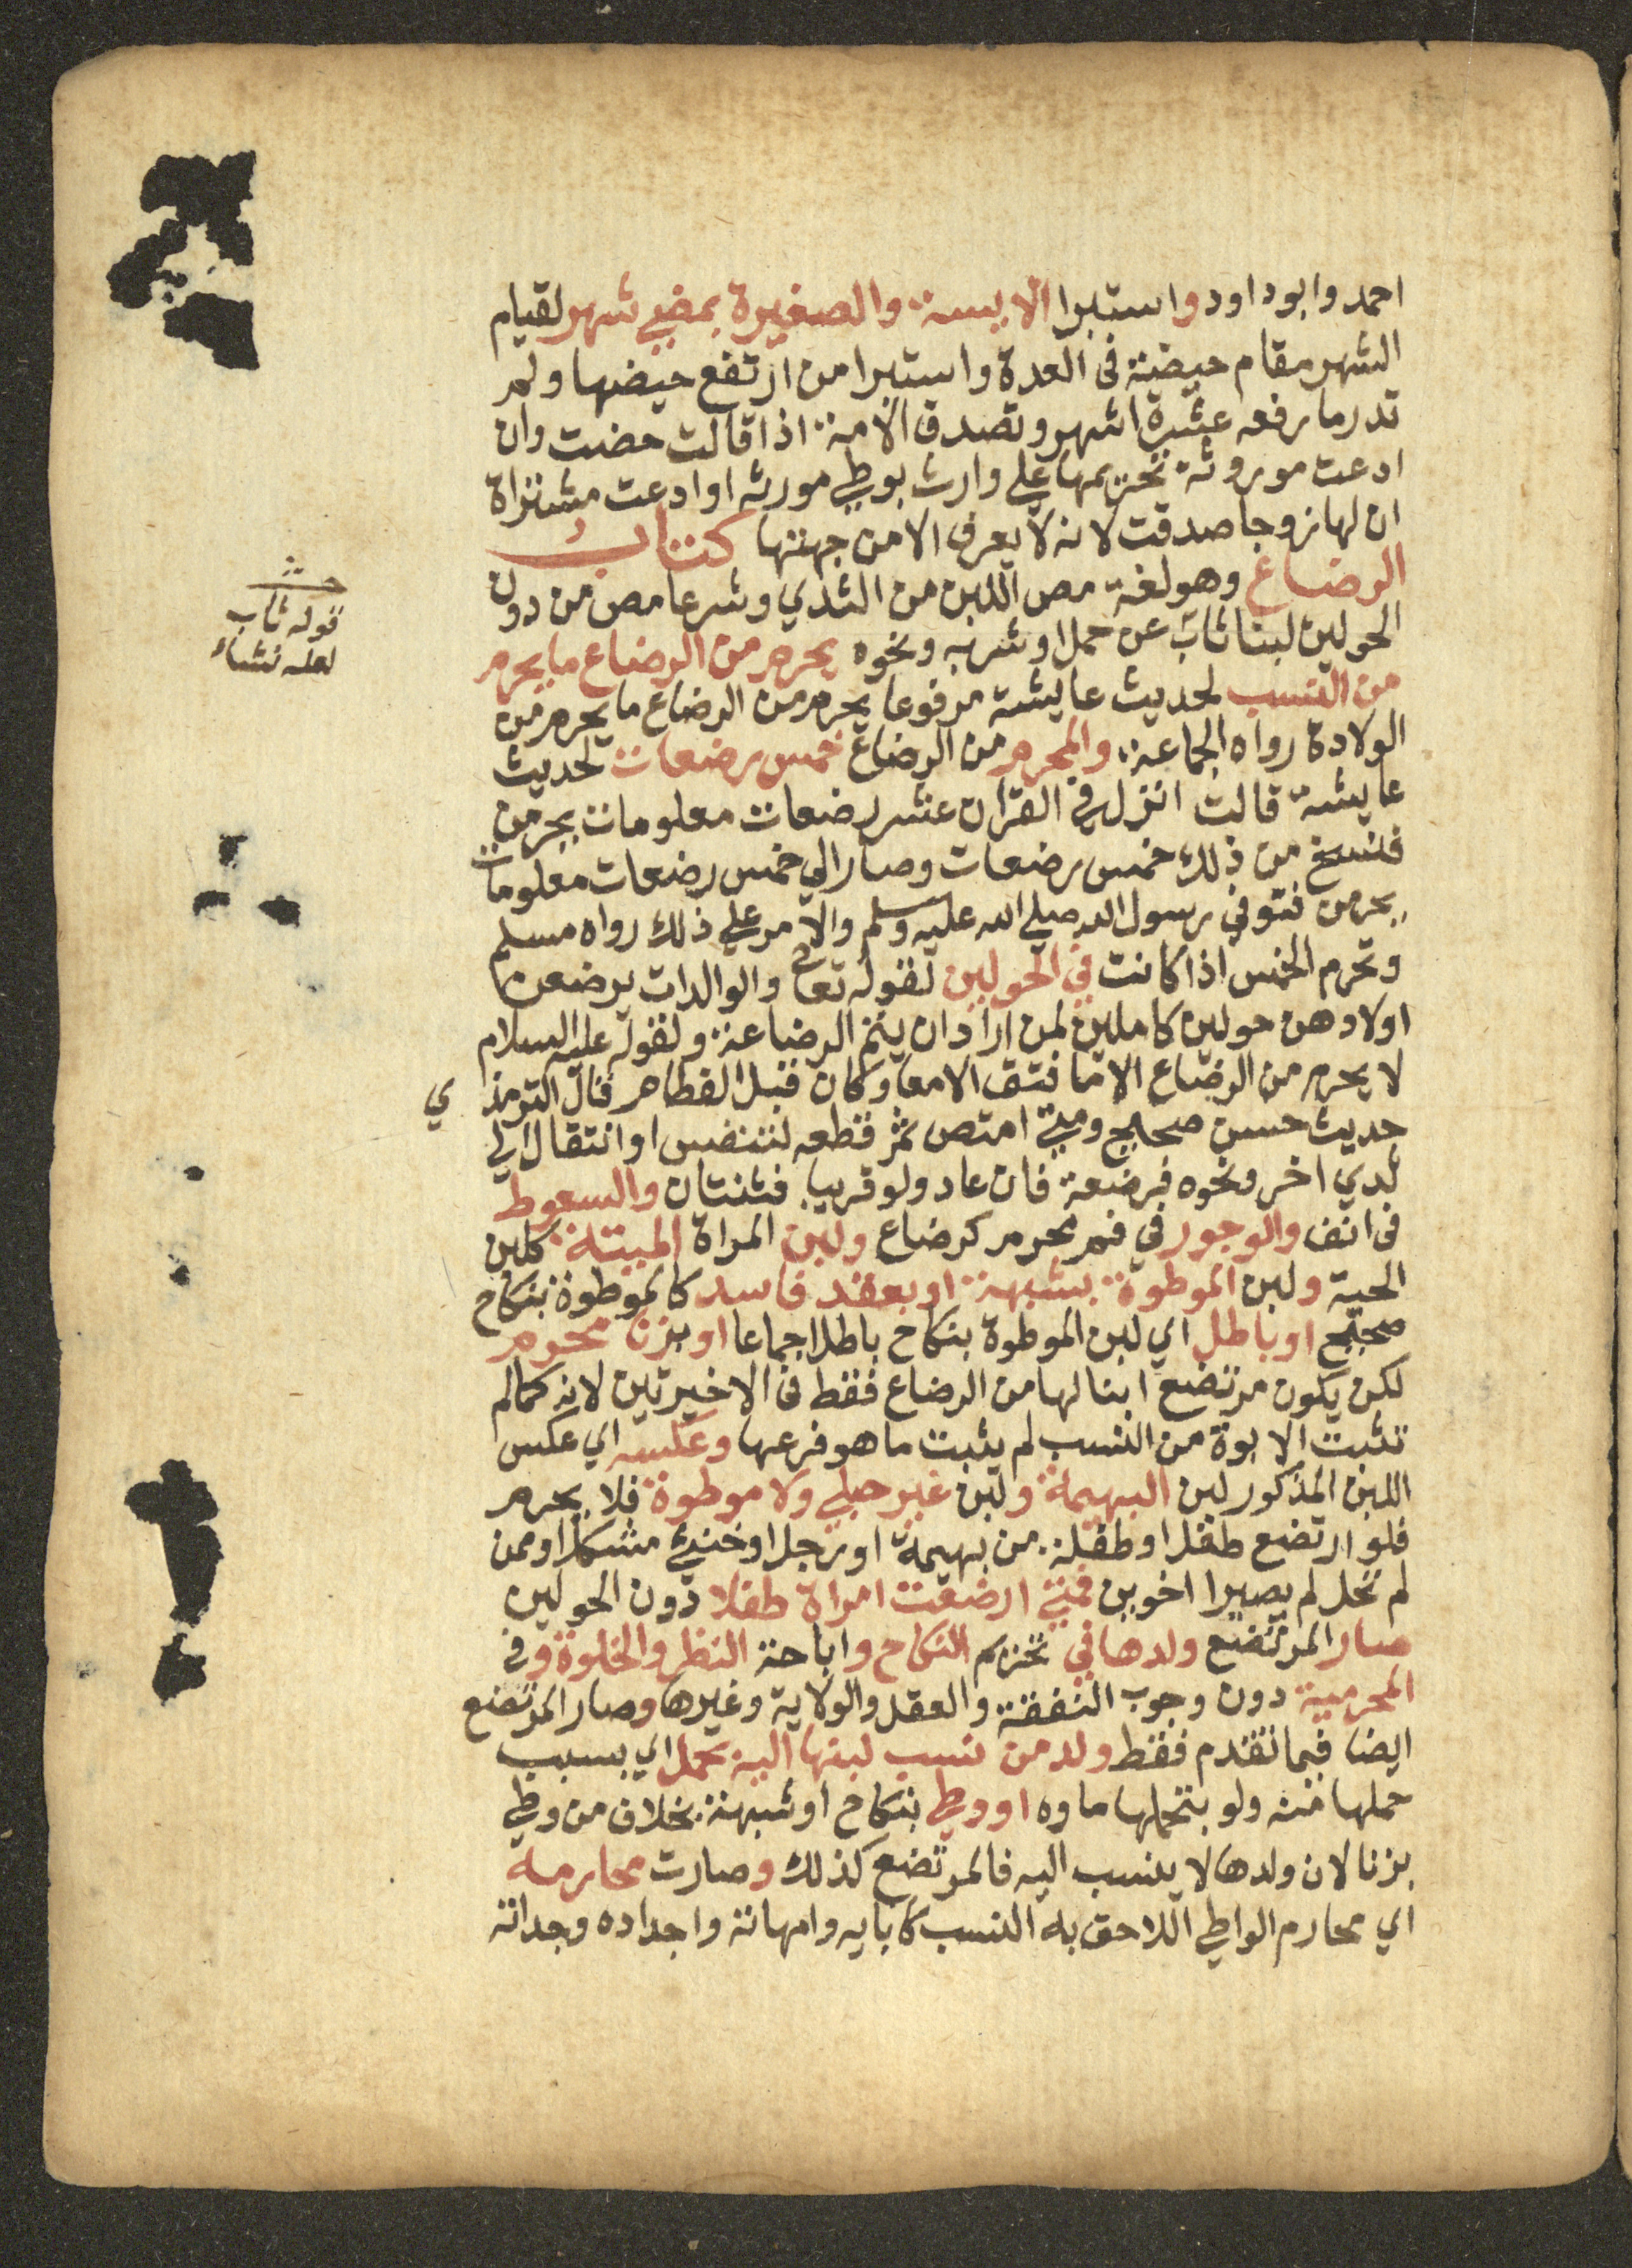 احمد وابو داود واستبرا الايسة والصغيرة بمضي شهر لقيام
الشهر مقام حيضة فى العدة واستبرا من ارتفع حيضها ولم
تدر ما رفعه عشرة اشهر وتصدق الامة اذا قالت حضت وان
ادعت موروثة تحريمها على وارث بوطي مورثه او ادعت مشتراة
ان لها زوجا صدقت لانه لا يعرف الا من جهتها كتاب
الرضاع وهو لغة مص اللبن من الثدي وشرعا مص من دون
الحولين لبنا ثاب عن حمل او شربه ونحوه يحرم من الرضاع ما يحرم
من النسب لحديث عايشة مرفوعا يحرم من الرضاع ما يحرم من
الولادة رواه الجماعة والمحرم من الرضاع خمس رضعات لحديث
عايشة قالت انزل في القران عشر رضعات معلومات يحرمن
فنسخ من ذلك خمس رضعات وصار الي خمس رضعات معلومات
يحرمن فتوفي رسول الله صلى الله عليه وسلم والامر على ذلك رواه مسلم
وتحرم الخمس اذا كانت في الحولين لقوله تعالى والوالدات يرضعن
اولادهن حولين كاملين لمن اراد ان يتم الرضاعة ولقوله عليه السلام
لا يحرم من الرضاع الا ما فتق الامعا وكان قبل الفطام قال الترمذي
حديث حسن صحيح ومتي امتص ثم قطعه لتنفس او انتقال الي
ثدي اخر ونحوه فرضعة فان عاد ولو قريبا فثنتان والسعوط
فى انف والوجور في فم محرم كرضاع ولبن المراة الميتة كلبن
الحية ولبن الموطوة بشبهة او بعقد فاسد كالموطوة بنكاح
صحيح او باطل اي لبن الموطوة بنكاح باطل اجماعا او بزنا محرم
لكن يكون مرتضع ابنا لها من الرضاع فقط فى الاخيرتين لانه كما لم
تثبت الابوة من النسب لم يثبت ما هو فرعها وعكسه اي عكس
اللبن المذكور لبن البهيمة ولبن غير حبلي ولا موطوة فلا يحرم
فلو ارتضع طفل او طفلة من بهيمة او رجل او خنثي مشكل او ممن
لم تحمل لم يصيرا اخوين فمتي ارضعت امراة طفلا دون الحولين
صار المرتضع ولدها في تحريم النكاح واباحة النظر والخلوة وفي
المحرمية دون وجوب النفقة والعقل والولاية وغيرها وصار المرتضع
ايضا فيما تقدم فقط ولد من نسب لبنها اليه بحمل اي بسبب
حملها منه ولو بتحملها ماوه او وطي بنكاح او شبهة بخلاف من وطي
بزنا لان ولدها لا ينسب اليه فالمرتضع كذلك وصارت محارمه
اي محارم الواطي اللاحق به النسب كابايه وامهاته واجداده وجداته
قوله ثاب
لعله نشاء